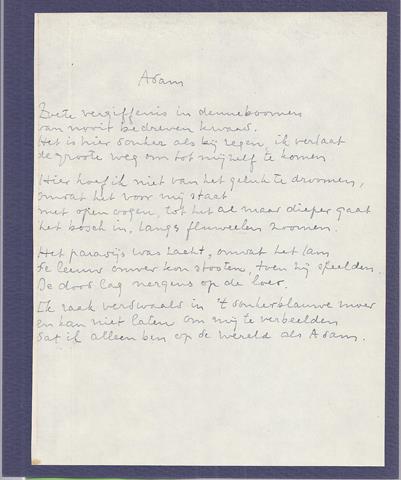 Adam
Zoete vergiffenis in denneboomen
van nooit bedreven kwaad.
Het is hier donker als bij regen, ik verlaat
de groote weg om tot mijzelf te komen
Hier hoef ik niet van het geluk te droomen,
omdat het voor mij staat
met open oogen, tot het al maar dieper gaat
het bosch in, langs fluweelen zoomen.
Het paradijs was zacht, omdat het lam
de leeuw omver kon stooten, toen zij speelden.
De dood lag nergens op de loer.
Ik raak verdwaald in 't donkerblauwe
en kan niet laten om mij te verbeelden
dat ik alleen ben op de wereld als Adam.